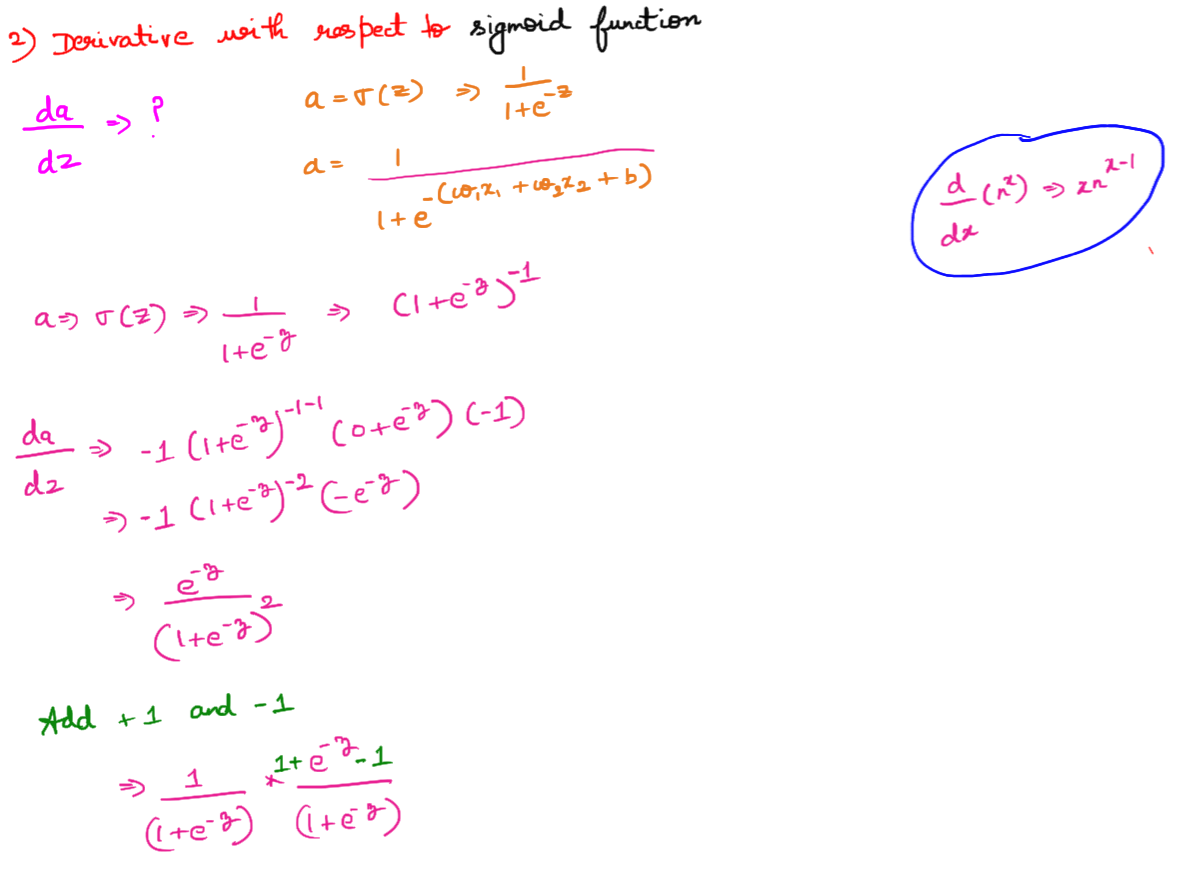 2) Derivative with respect to sigmoid function
da/dz => ?
a = σ(z) => 1/(1+e^-z)
a = 1/(1+e^-(w₁x₁ + w₂x₂ + b))
d/dx (n^x) => xn^x-1
a => σ(z) => 1/(1+e^-z) => (1+e^-z)^-1
da/dz => -1 (1+e^-z)^-1-1 (0+e^-z) (-1)
=> -1 (1+e^-z)^-2 (-e^-z)
=> e^-z/(1+e^-z)^2
Add +1 and -1
=> 1/(1+e^-z) * (1+e^-z-1)/(1+e^-z)